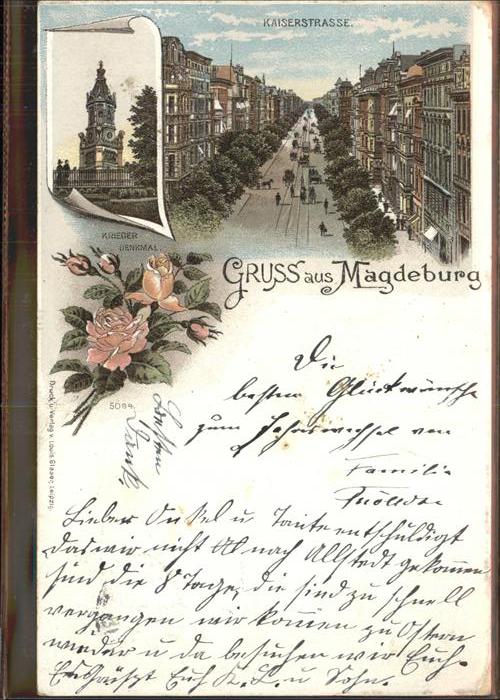 KAISERSTRASSE.
KRIEGER
DENKMAL.
GRUSS aus Magdeburg
5084.
Druck u. Verlag v. Louis Glaser, Leipzig.
Die
besten Glückwünsche
zum Jahreswechsel von
Familie
Besten
Dank.
Lieber Onkel u Tante entschuldigt
das wir nicht nach Allstedt gekommen
sind die 8 Tage, die sind zu schnell
vergangen wir komen zu Ostern
wieder u da besuchen wir Euch.
Euch K. L. u Sohn.